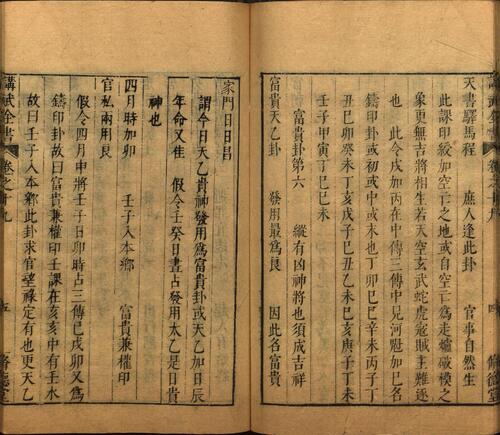 天書驛馬程 庶人逢此卦 官事自然生
此課印綬加空亡之地或自空亡為走爐破模之
象更無吉將相生若天空玄武蛇虎寇賊主難逐
此 令戌加丙在中傳三傳中見河魁加巳名
鑄印卦或初或中或末也丁卯巳巳辛未丙子丁
丑巳卯癸未丁亥戊子巳丑乙未巳亥庚子丁未
壬子甲寅丁巳巳未
富貴卦第六 縱有凶神將也須成吉祥
富貴天乙卦 發用最為良 因此名富貴
家門日日昌
謂今日天乙貴神發用為富貴卦或天乙加日辰
年命又佳 假令壬癸日晝占發用太乙是日貴
神也
四月時加卯 壬子入本鄉 富貴兼權印
官私兩用良
假令四月申將壬子日卯時占三傳巳戌卯又為
鑄印卦故曰富貴兼權印壬課在亥亥中有壬水
故曰壬子入本鄉此卦求官望祿定有也更天乙
講武全書 卷之十九 五